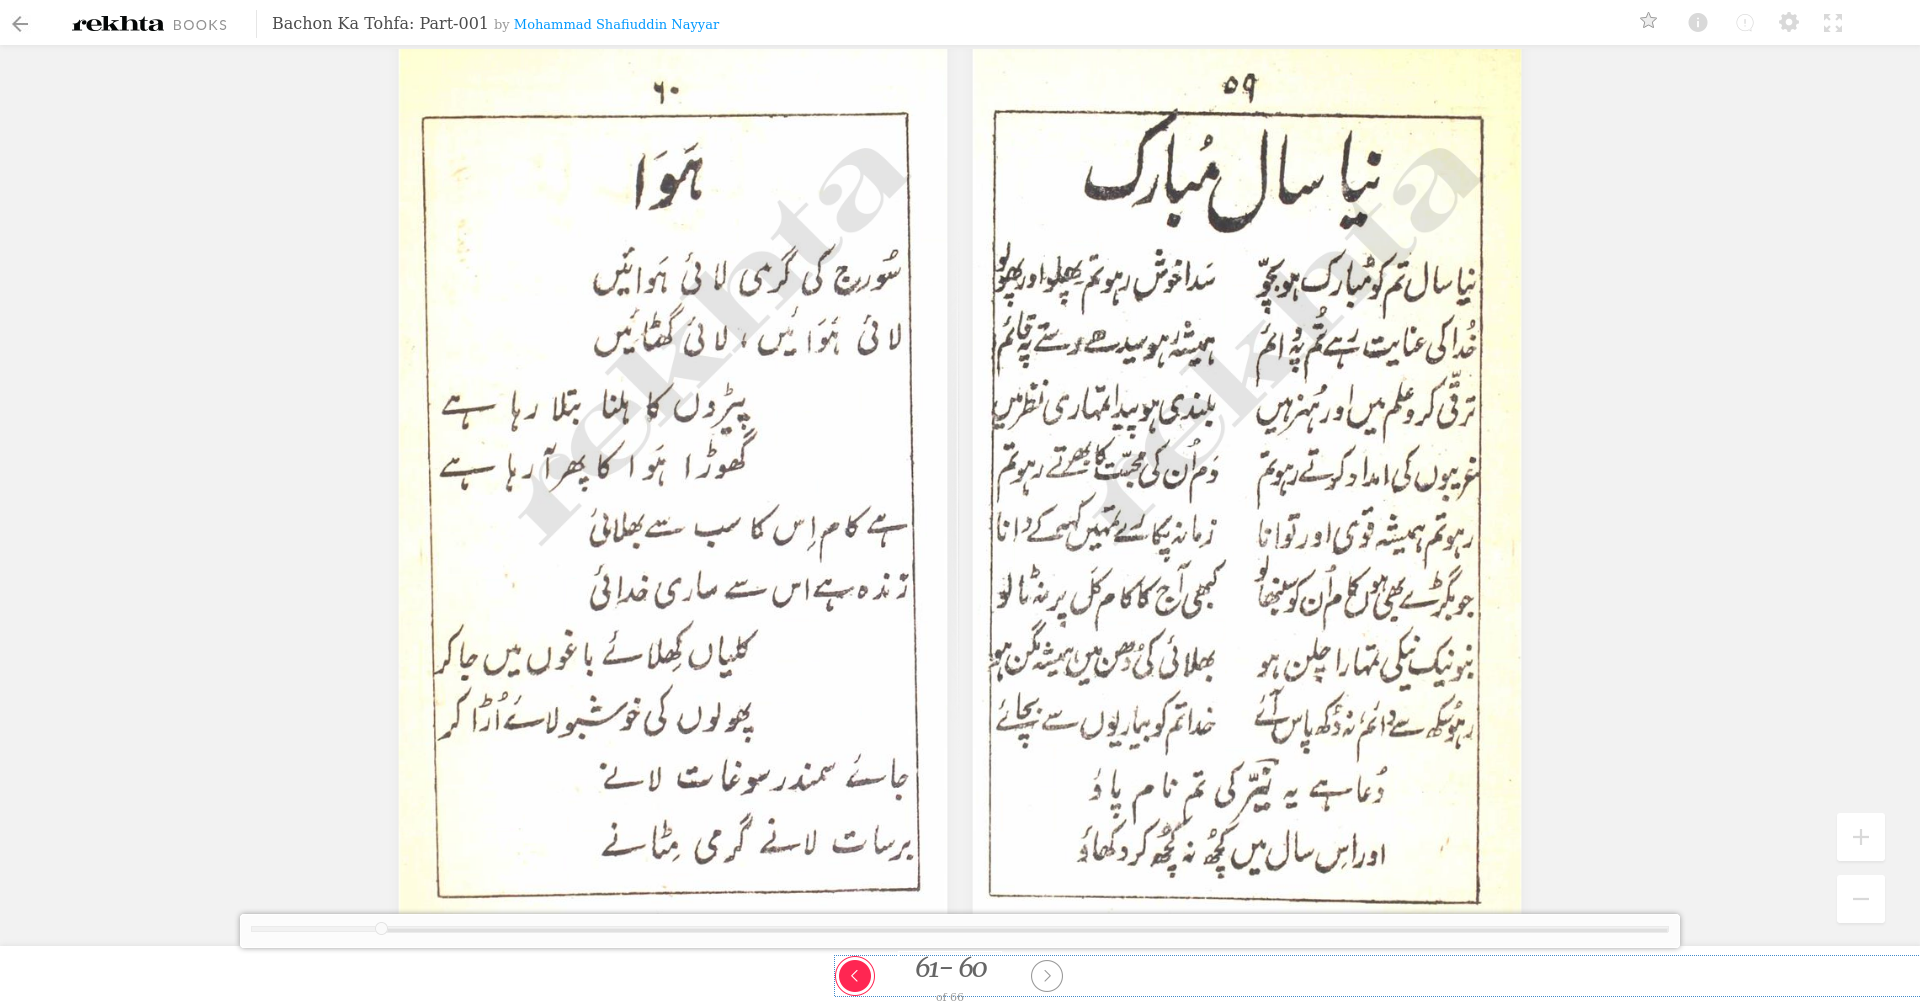 rekhta BOOKS
Bachon Ka Tohfa: Part-001 by Mohammad Shafiuddin Nayyar
۵۹
نیا سال مُبارک
نیا سال تم کو مُبارک ہو بچّو سَدا خوش رہو تم پھلو اور پھولو
خُدا کی عنایت رہے تُم پہ دائم ہمیشہ رہو سیدھے رستے پہ قائم
ترقّی کرو علم میں اور ہُنر میں بلندی ہو پیدا تمہاری نظر میں
غریبوں کی امداد کرتے رہو تم دَم اُن کی محبّت کا بھرتے رہو تم
رہو تم ہمیشہ قوی اور توانا زمانہ پکارے تمہیں کہہ کے دانا
جو بگڑے بھی ہوں کام اُن کو سنبھالو کبھی آج کا کام کَل پر نہ ٹالو
بنو نیک نیکی تمہارا چلن ہو بھلائی کی دُھن میں ہمیشہ مگن ہو
رہو سُکھ سے دائم نہ دُکھ پاس آئے خدا تم کو بیماریوں سے بچائے
دُعا ہے یہ نیّر کی تم نام پاؤ
اور اِس سال میں کچُھ نہ کچُھ کر دکھاؤ
۶۰
ہَوَا
سُورج کی گرمی لائی ہَوائیں
لائی ہَوَائیں، لائی گھٹائیں
پیڑوں کا ہلنا بتلا رہا ہے
گھوڑا ہَوا کا پھر آ رہا ہے
ہے کام اِس کا سب سے بھلائی
زندہ ہے اس سے ساری خدائی
کلیاں کِھلائے باغوں میں جاکر
پھولوں کی خوشبو لائے اُڑا کر
جائے سمندر سوغات لانے
برسات لانے گرمی مِٹانے
rekhta
rekhta
61- 60
of 66